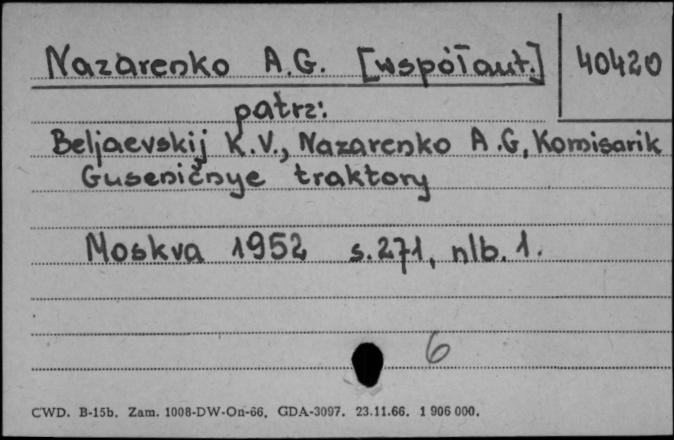 Nazarenko A.G. [współaut.]
40420
patrz:
Beljaevskij K.V., Nazarenko A.G, Komisarik
Guseničnye traktory
Moskva 1952 s.271, nlb. 1.
6
CWD. B-15b. Zam. 1008-DW-On-66. GDA-3097. 23.11.66. 1 906 000.